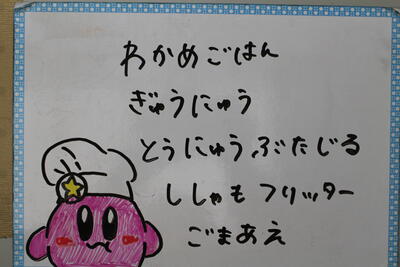 わかめごはん
ぎゅうにゅう
とうにゅうぶたじる
ししゃもフリッター
ごまあえ